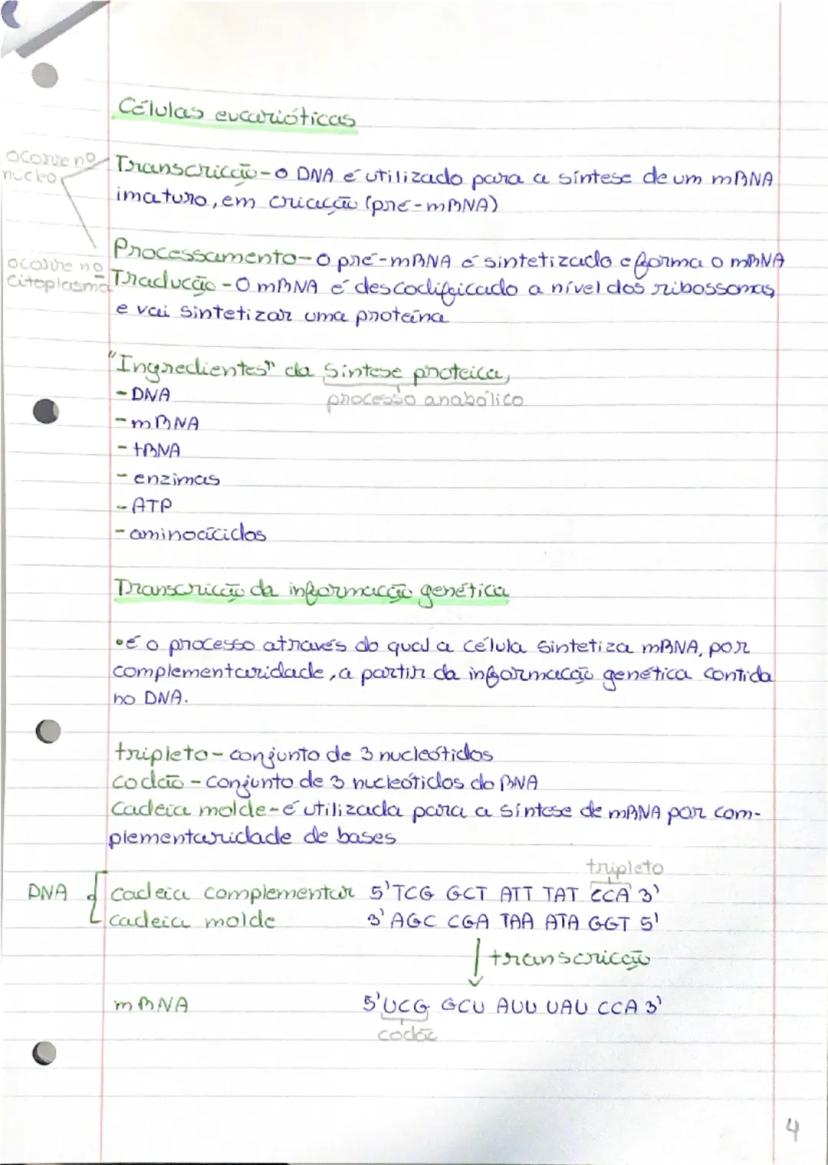 Células eucarióticas
ocorre no
núcleo
Transcrição - o DNA é utilizado para a síntese de um mRNA
imaturo, em criação (pré-mRNA)
Processamento - o pré-mRNA é sintetizado e forma o mRNA
ocorre no
citoplasma
Tradução - O mRNA é descodificado a nível dos ribossomas,
e vai sintetizar uma proteína
"Ingredientes" da síntese proteica,
processo anabólico
- DNA
- mRNA
- tRNA
- enzimas
- ATP
- aminoácidos
Transcrição da informação genética
• é o processo através do qual a célula sintetiza mRNA, por
complementaridade, a partir da informação genética contida
no DNA.
tripleto - conjunto de 3 nucleótidos
codão - conjunto de 3 nucleótidos do RNA
Cadeia molde - é utilizada para a síntese de mRNA por com-
plementaridade de bases
tripleto
DNA { cadeia complementar 5'TCG GCT ATT TAT CCA 3'
cadeia molde 3' AGC CGA TAA ATA GGT 5'
transcrição
mRNA 5'UCG GCU AUU UAU CCA 3'
codão
4